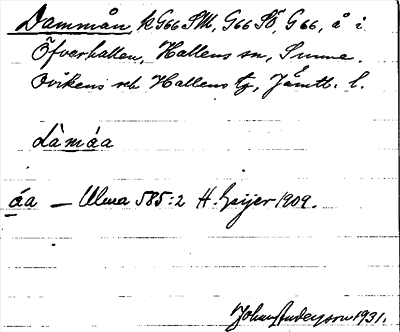 Dammån, k G66 SV, G66 SÖ, G 66, å i
Öfverhallen, Hallens sn, Sunne,
Ovikens och Hallens tg, Jämtl. l.
dàmáa
áa — Ulma 585:2 H. Geijer 1909.
Johan Anderson 1931.